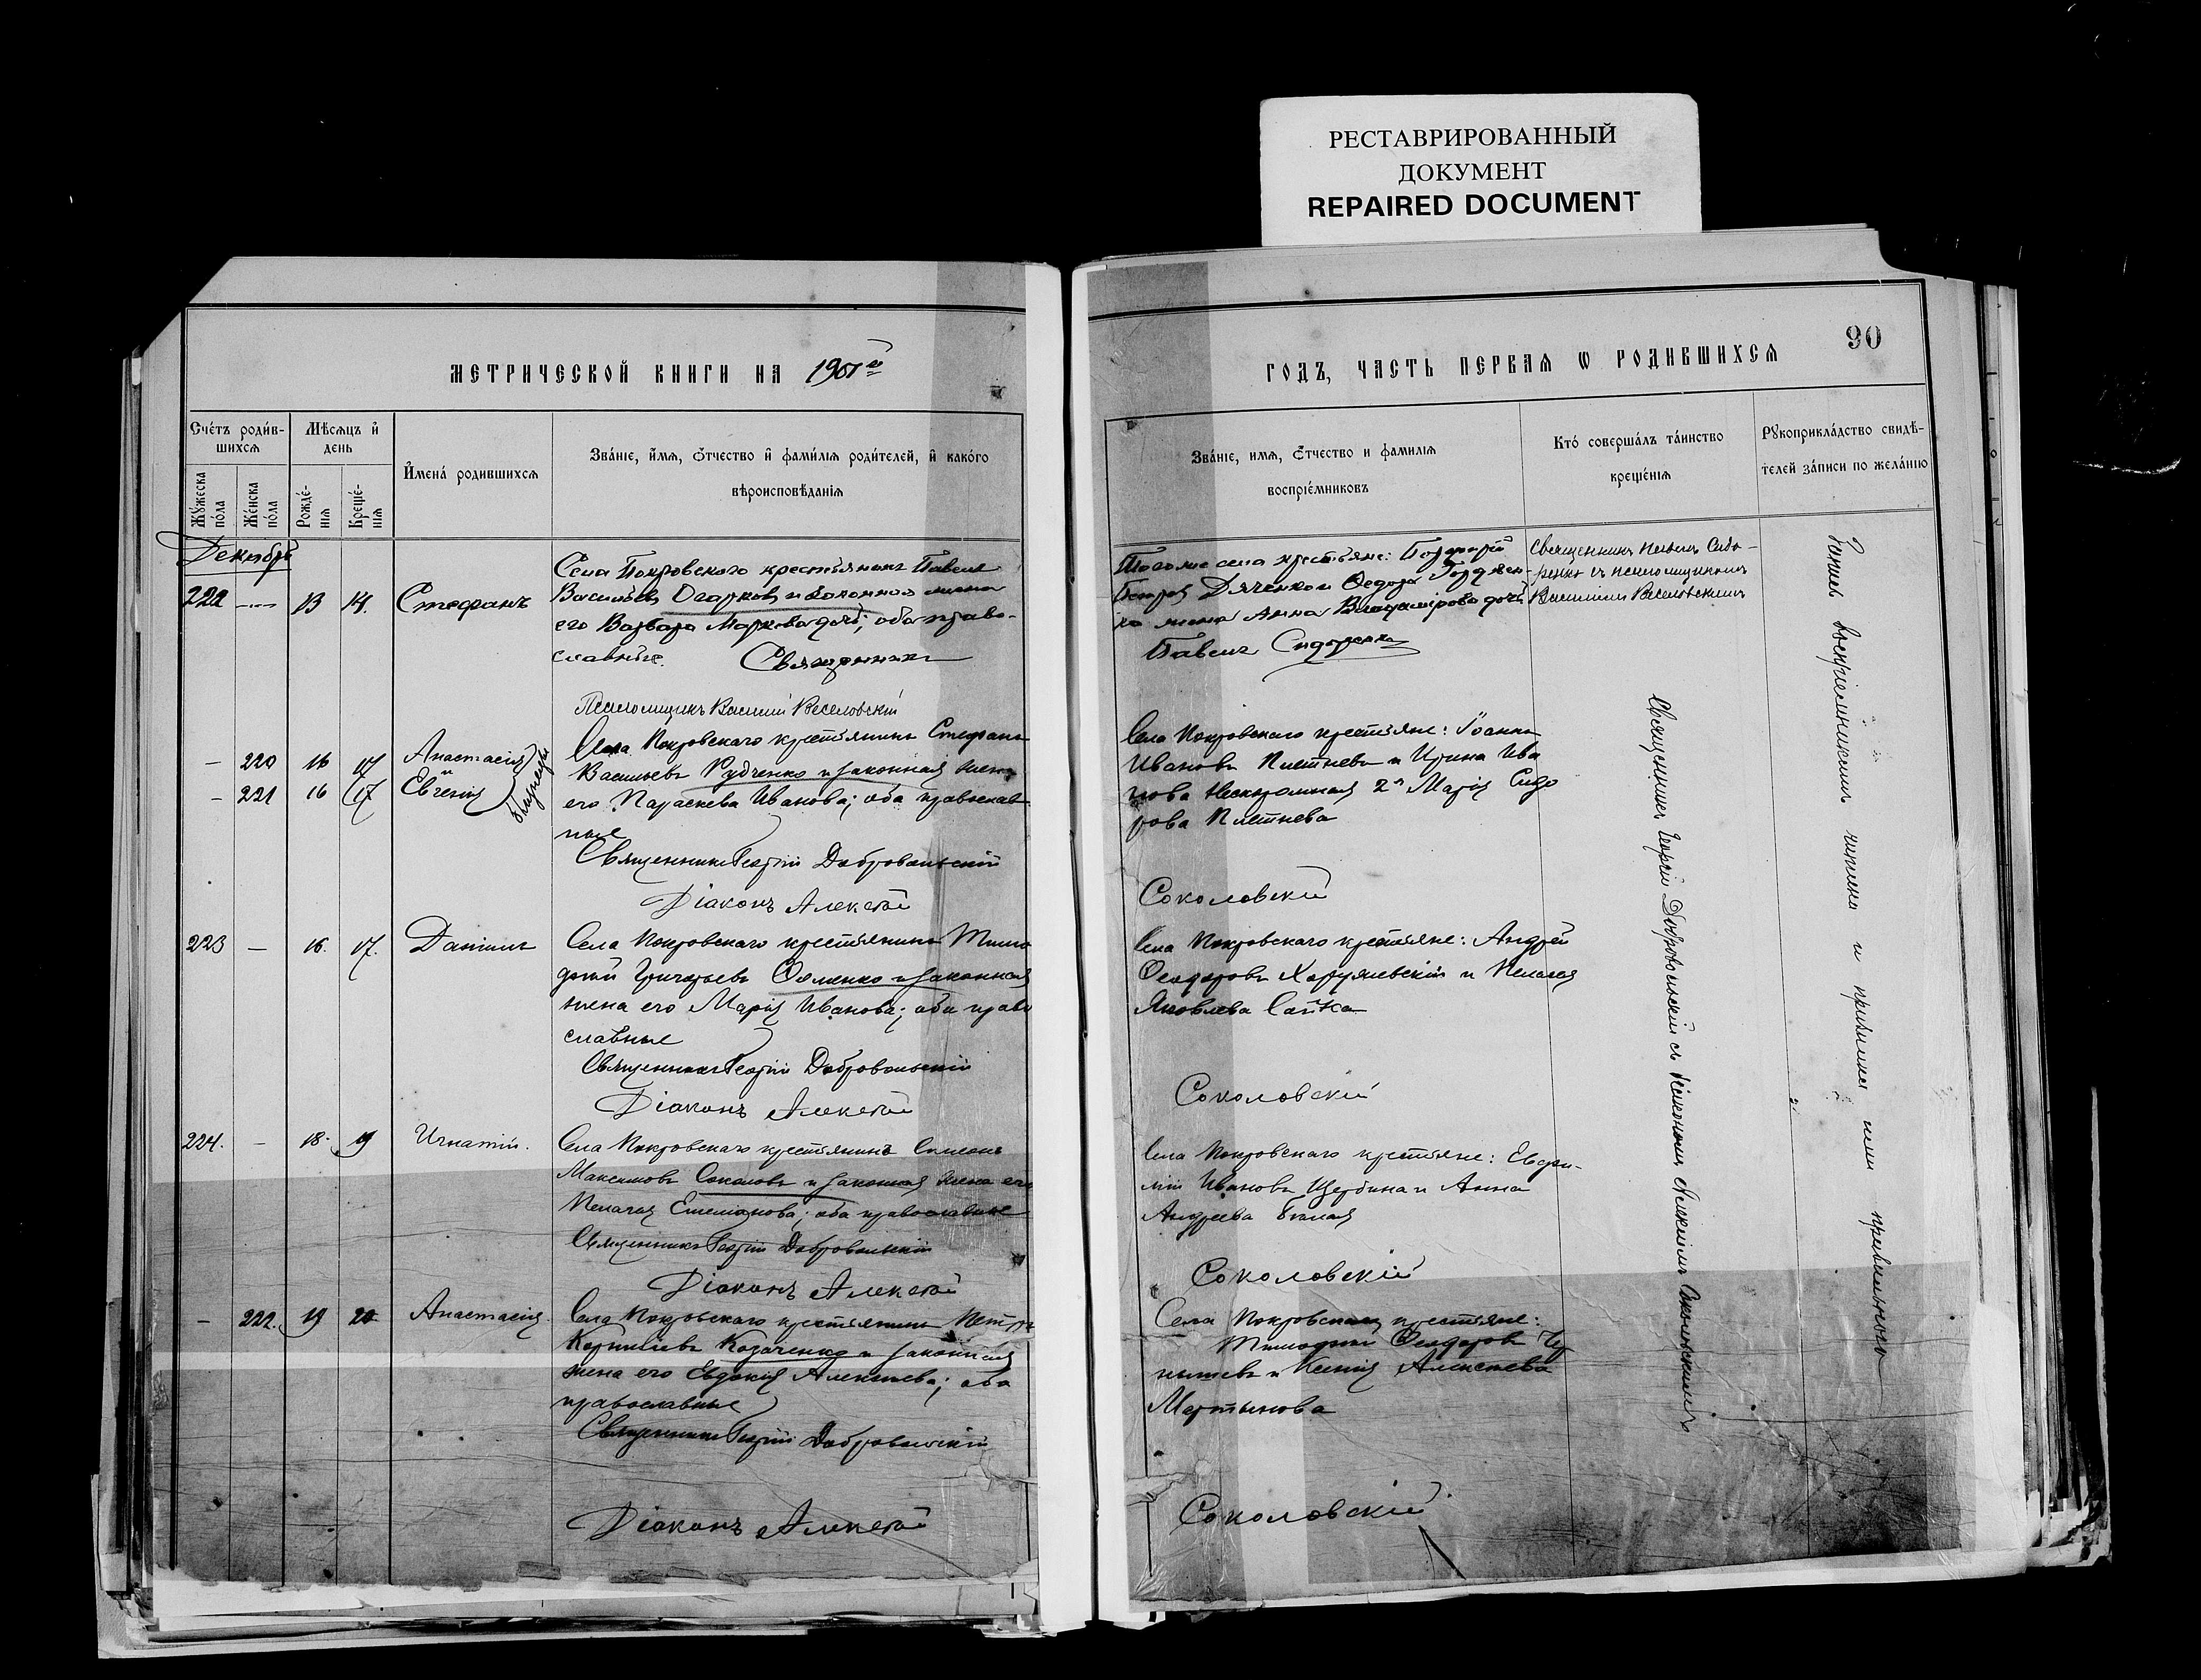 РЕСТАВРИРОВАННЫЙ
ДОКУМЕНТ
REPAIRED DOCUMENT
МЕТРИЧЕСКОЙ КНИГИ НА 1901й
ГОДЪ, ЧАСТЬ ПЕРВАЯ Ѡ РОДИВШИХСЯ
90
Счетъ родив-
шихся
Мѣсяцъ и
день
Мужеска
пола
Женска
пола
Рожде-
нія
Креще-
нія
Имена родившихся
Званіе, имя, отчество и фамилія родителей, и какого
вѣроисповѣданія
Званіе, имя, отчество и фамилія
воспріемниковъ
Кто совершалъ таинство
крещенія
Рукоприкладство свидѣ-
телей записи по желанію
Декабрь
222 — 13 14. Стефанъ
Села Покровскаго крестьянинъ Павелъ
Васильевъ Огарковъ и законная жена
его Варвара Маркова дочь; оба право-
славные. Священникъ
Псаломщикъ Василій Веселовскій
Тогоже села крестьяне:
Дяченко и
жена Анна Владимірова дочь
Павелъ Сидоренко
Священникъ Павелъ Сидо-
ренко съ псаломщикомъ
Василіемъ Веселовскимъ
— 220 16 17 Анастасія
— 221 16 17 Евгенія
близнецы
Села Покровскаго крестьянинъ Стефанъ
Васильевъ Рудченко и законная жена
его Параскева Иванова; оба православ
ные
Священникъ Георгій Добровольскій
Діаконъ Алексѣй
Села Покровскаго крестьяне: Іоаннъ
Ивановъ Плетневъ и Ирина Ива
нова 2я Марія Сидо
рова Плетнева
Соколовскій
223 — 16. 17. Даніилъ
Села Покровскаго крестьянинъ Тимо
фей Григорьевъ Фоменко и законная
жена его Марія Иванова; оба право
славные
Священникъ Георгій Добровольскій
Діаконъ Алексѣй
Села Покровскаго крестьяне: Андрей
Феодоровъ и Пелагея
Яковлева Сайко
Соколовскій
224. — 18. 19 Игнатій.
Села Покровскаго крестьянинъ Симеонъ
Максимовъ Соколовъ и законная жена его
Пелагея Емеліанова; оба православные
Священникъ Георгій Добровольскій
Діаконъ Алексѣй
Села Покровскаго крестьяне: Евфи-
мій Ивановъ Щербина и Анна
Андреева Бѣлая
Соколовскій
— 222. 19 20 Анастасія.
Села Покровскаго крестьянинъ Петръ
Корниліевъ Козаченко и законная
жена его Евдокія Алексѣева; оба
православные
Священникъ Георгій Добровольскій
Діаконъ Алексѣй
Села Покровскаго крестьяне:
Тимофей Феодоровъ
и Ксенія Алексѣева
Мартынова
Соколовскій
Священникъ Георгій Добровольскій съ діакономъ Алексѣемъ Соколовскимъ